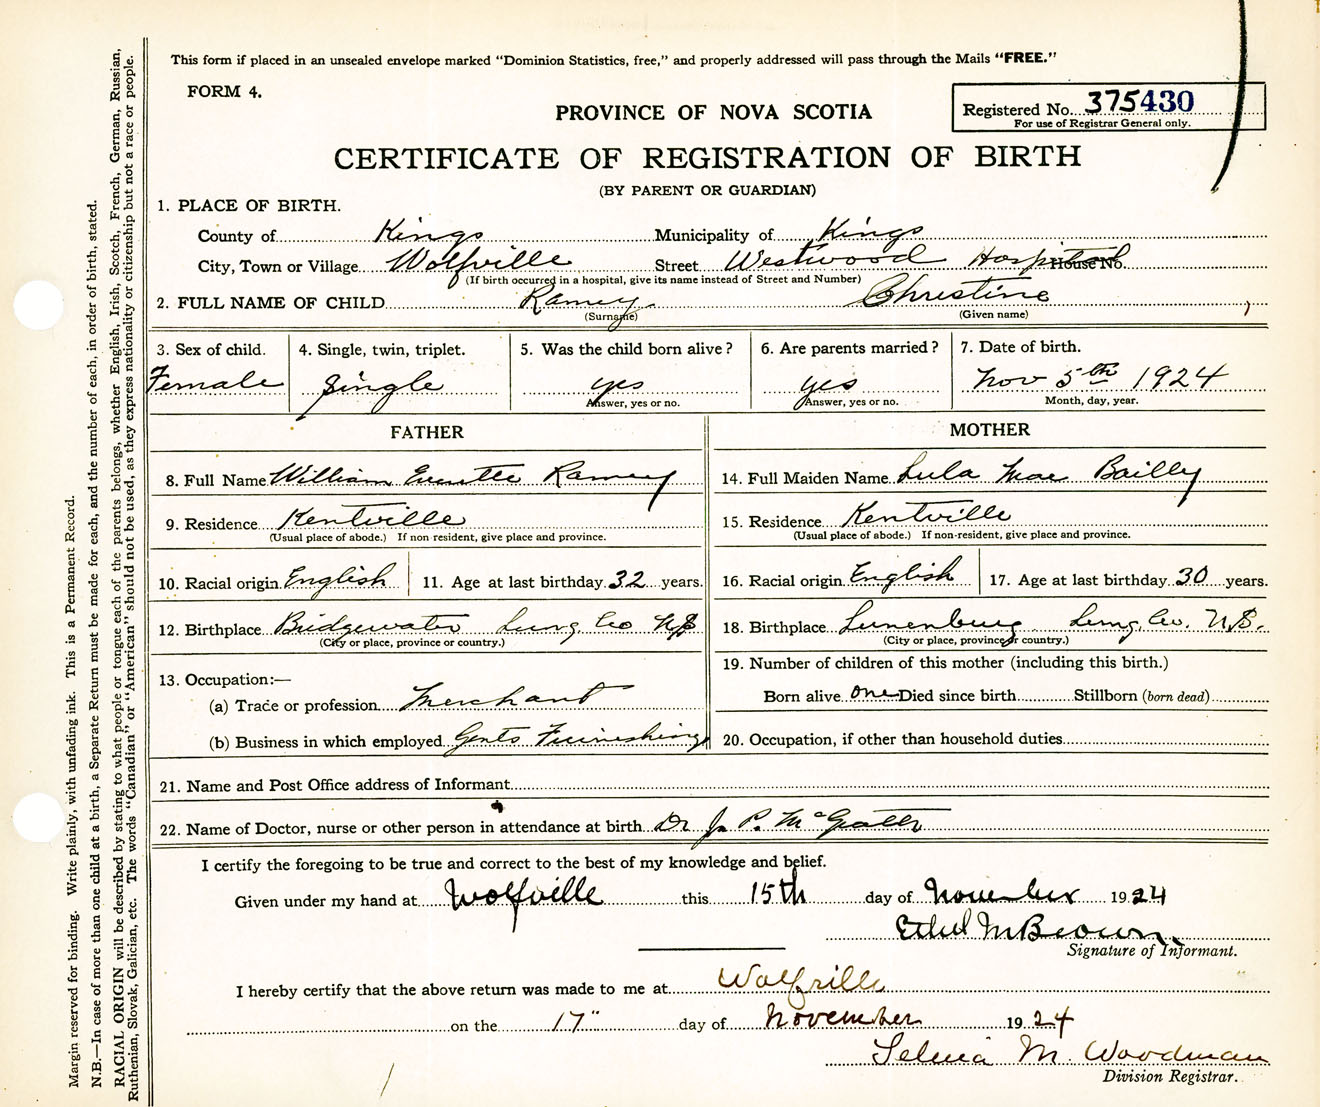 This form if placed in an unsealed envelope marked "Dominion Statistics, free," and properly addressed will pass through the Mails "FREE."
FORM 4.
Registered No. 375430
For use of Registrar General only.
PROVINCE OF NOVA SCOTIA
CERTIFICATE OF REGISTRATION OF BIRTH
(BY PARENT OR GUARDIAN)
1. PLACE OF BIRTH.
County of Kings Municipality of Kings
City, Town or Village Wolfville Street Westwood Hospital House No.
(If birth occurred in a hospital, give its name instead of Street and Number)
2. FULL NAME OF CHILD Ramey Christine
(Surname) (Given name)
3. Sex of child. 4. Single, twin, triplet. 5. Was the child born alive? 6. Are parents married? 7. Date of birth.
Female Single yes yes Nov 5th 1924
Answer, yes or no. Answer, yes or no. Month, day, year.
FATHER MOTHER
8. Full Name William Everette Ramey 14. Full Maiden Name Lula Mae Bailly
9. Residence Kentville 15. Residence Kentville
(Usual place of abode.) If non-resident, give place and province. (Usual place of abode.) If non-resident, give place and province.
10. Racial origin English 11. Age at last birthday 32 years. 16. Racial origin English 17. Age at last birthday 30 years.
12. Birthplace Bridgewater Lung. Co N.S 18. Birthplace Lunenburg Lung. Co. N.S.
(City or place, province or country.) (City or place, province or country.)
19. Number of children of this mother (including this birth.)
13. Occupation:—
(a) Trade or profession Merchant Born alive one Died since birth Stillborn (born dead)
(b) Business in which employed Gents Furnishings 20. Occupation, if other than household duties
21. Name and Post Office address of Informant
22. Name of Doctor, nurse or other person in attendance at birth Dr J. P. McGrath
I certify the foregoing to be true and correct to the best of my knowledge and belief.
Given under my hand at Wolfville this 15th day of November 1924
Ethel M Brown
Signature of Informant.
I hereby certify that the above return was made to me at Wolfville
on the 17" day of November 1924
Selina M. Woodman
Division Registrar.
Margin reserved for binding. Write plainly, with unfading ink. This is a Permanent Record.
N.B.—In case of more than one child at a birth, a Separate Return must be made for each, and the number of each, in order of birth, stated.
RACIAL ORIGIN will be described by stating to what people or tongue each of the parents belongs, whether English, Irish, Scotch, French, German, Russian,
Ruthenian, Slovak, Galician, etc. The words "Canadian" or "American" should not be used, as they express nationality or citizenship but not a race or people.